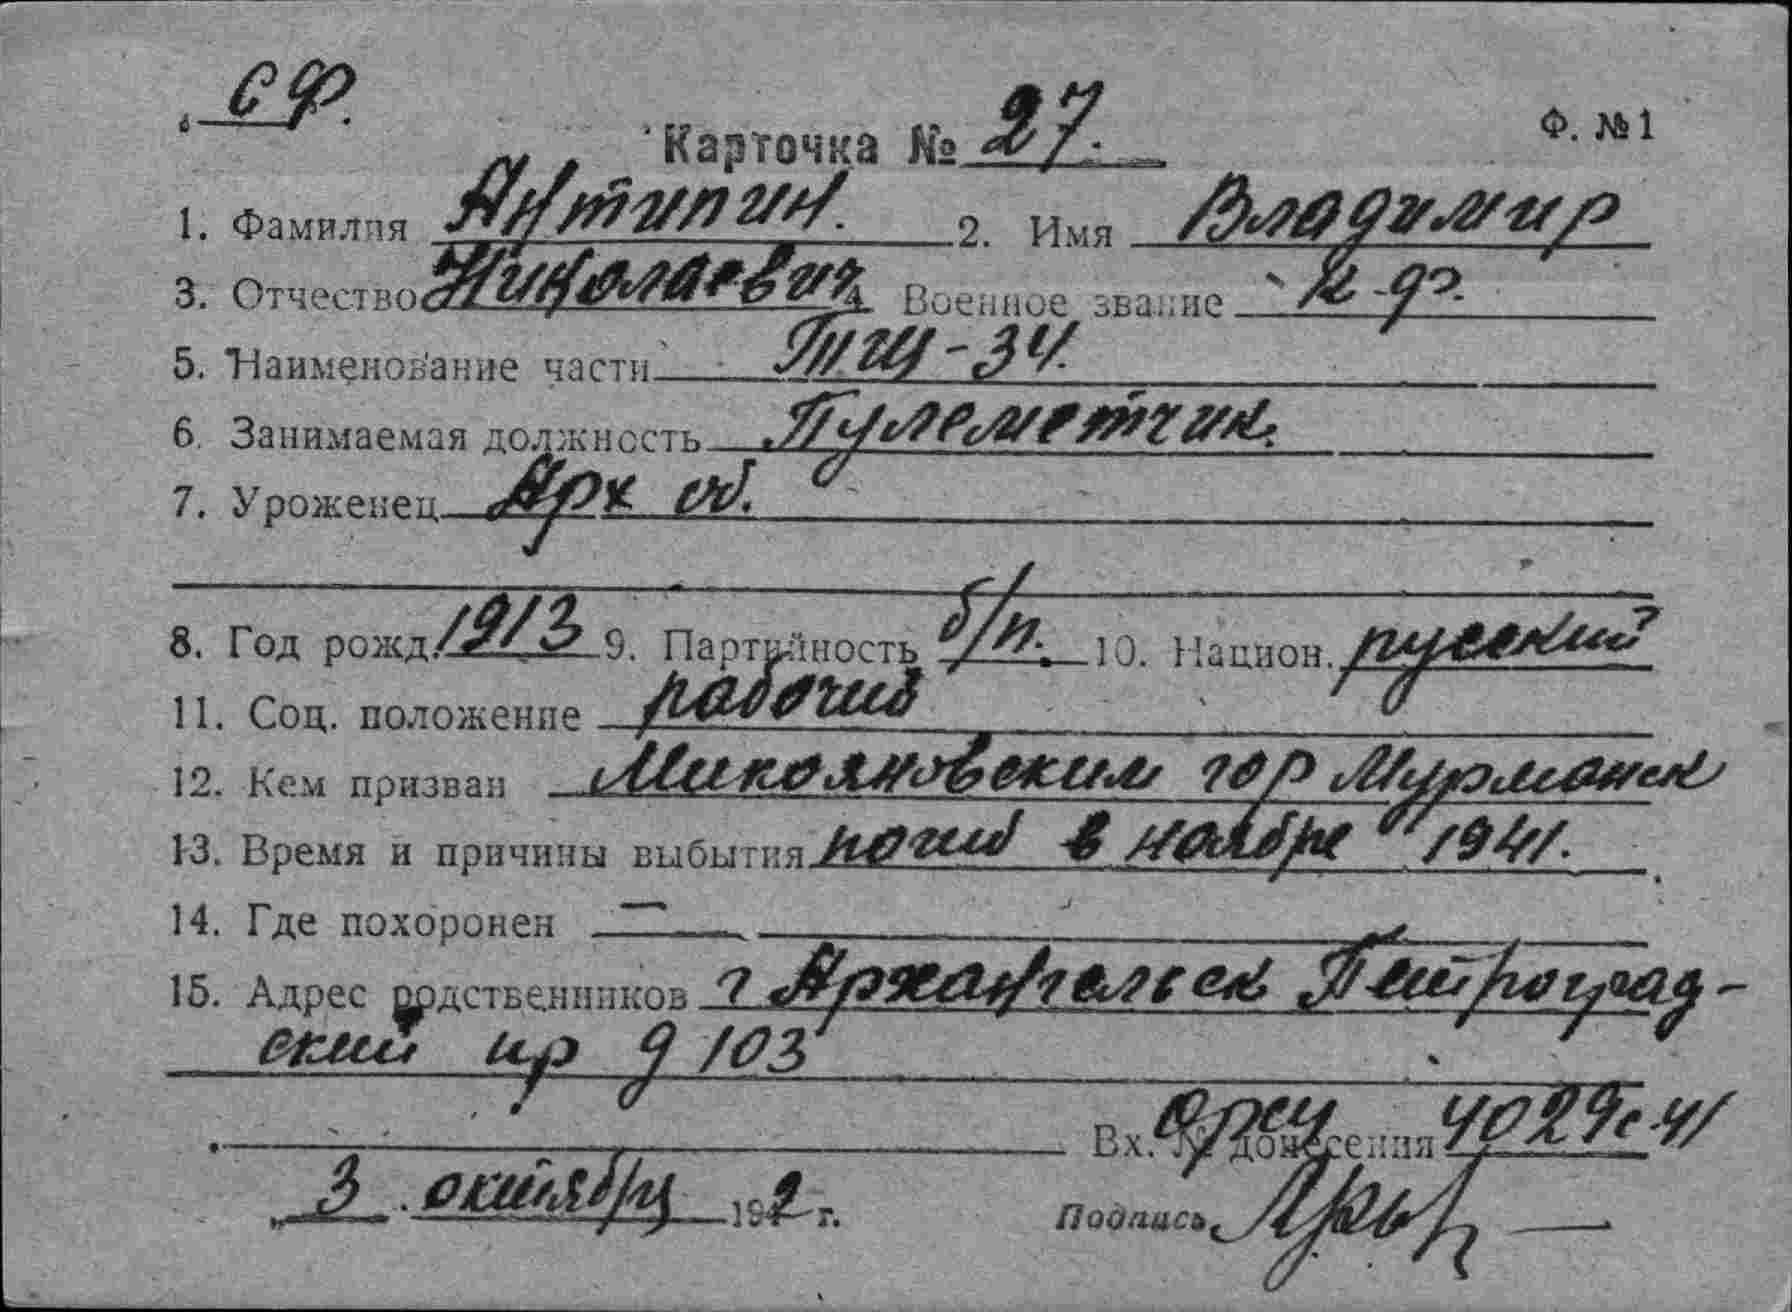 СФ.
Карточка № 27.
Ф. № 1
1. Фамилия Антипин. 2. Имя Владимир
3. Отчество Николаевич Военное звание к-ф.
5. Наименование части ТЩ-34.
6. Занимаемая должность Пулеметчик.
7. Уроженец Арх об.
8. Год рожд. 1913 9. Партийность б/п. 10. Национ. русский
11. Соц. положение рабочий
12. Кем призван Микояновским гор Мурманск
13. Время и причины выбытия погиб в ноябре 1941.
14. Где похоронен —
15. Адрес родственников г Архангельск Петроград-
ский пр д 103
Вх. № донесения 4029с-41
"3" октября 1942 г.
Подпись